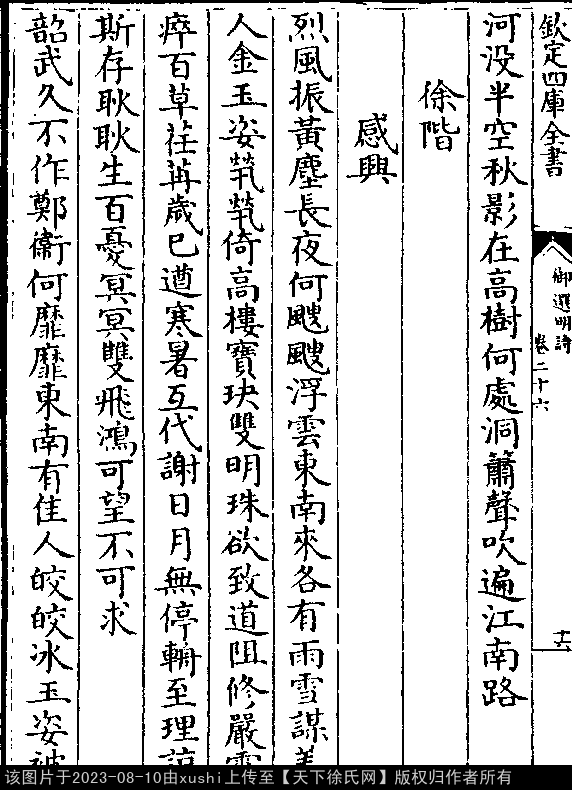 欽定四庫全書
御選明詩
卷二十六
十六
河没半空秋影在高樹何處洞簫聲吹遍江南路
徐階
感興
烈風振黄塵長夜何颼颼浮雲東南來各有雨雪謀美
人金玉姿煢煢倚高樓寶玦雙明珠欲致道阻修嚴霜
瘁百草荏苒歲已遒寒暑互代謝日月無停輈至理諒
斯存耿耿生百憂冥冥雙飛鴻可望不可求
韶武久不作鄭衛何靡靡東南有佳人皎皎冰玉姿被
该图片于2023-08-10由xushi上传至【天下徐氏网】版权归作者所有